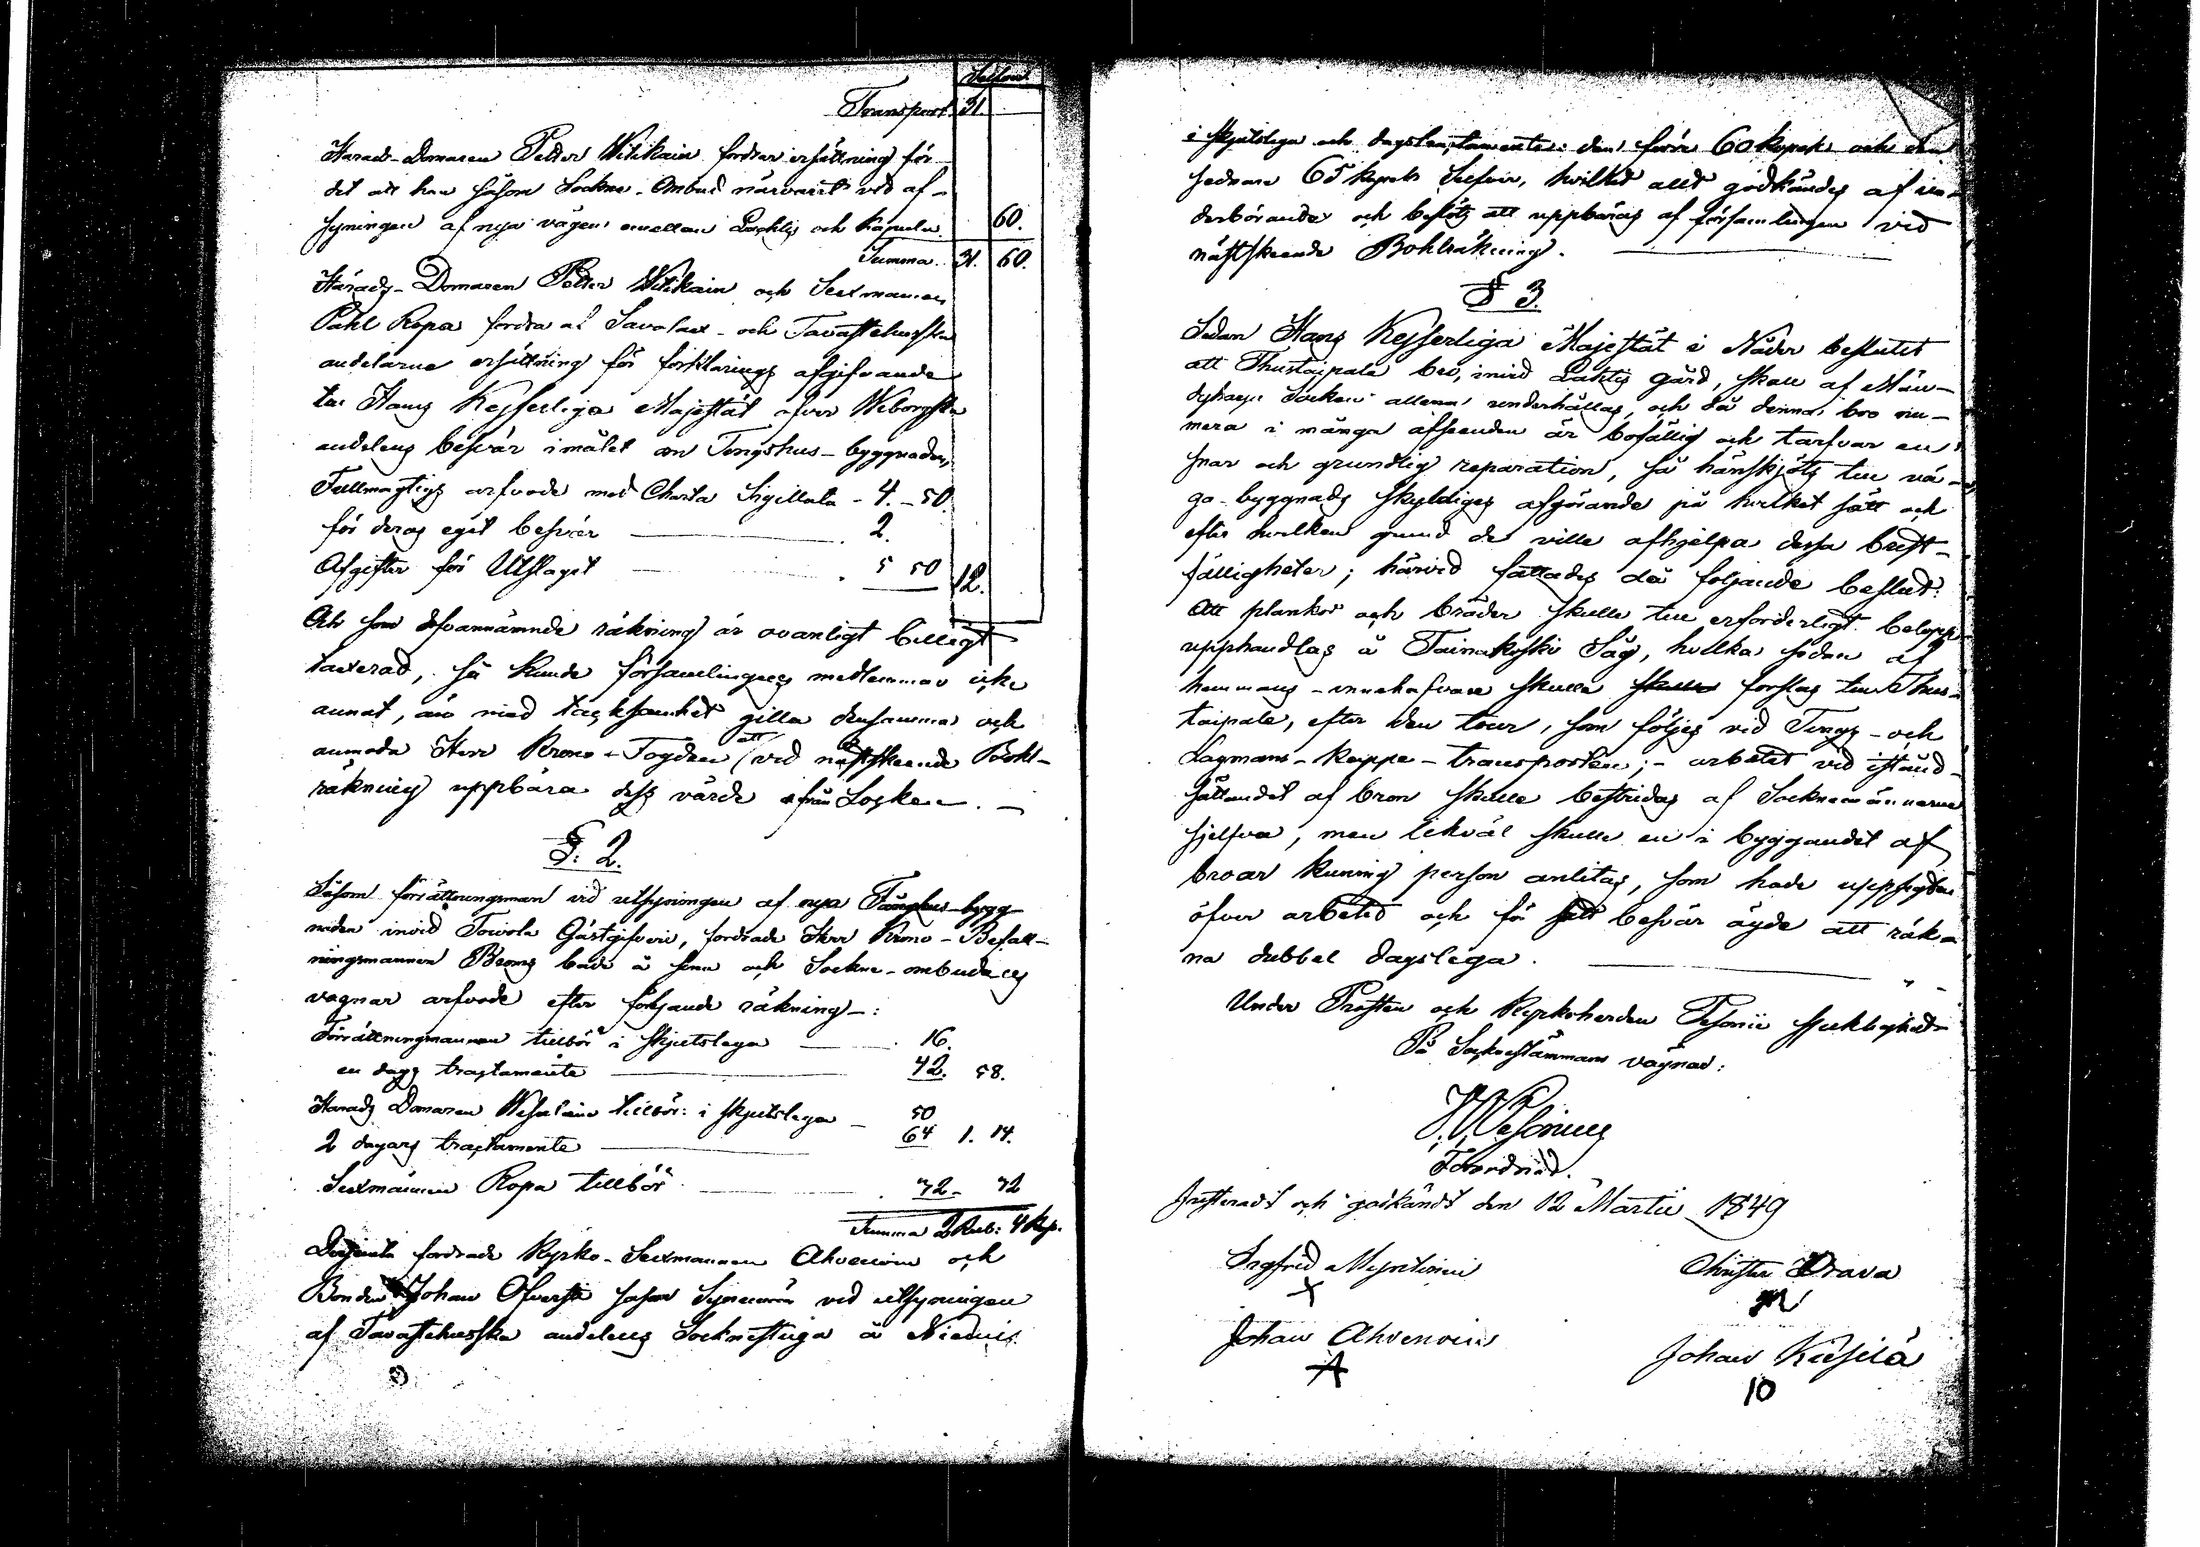 Silfver.
Transport 31.
Härads-Domaren Petter Witikain fordrar ersättning för
det att han såsom Sockne-Ombud närvarit vid af-
syningen af nya vägen emellan Lachtis och Kapula. 60.
Summa. 31. 60.
Härads-Domaren Petter Witikain och Sexmannen
Påhl Ropa fordra af Savolax- och Tavastehusska
andelarne ersättning för förklarings afgifvande
till Hans Kejserliga Majestät öfver Wiborgska
andelens besvär i målet om Tingshus-byggnaden,
Fullmägtigs arfvode med Charta Sigillata - 4. - 50.
för deras eget besvär 2.
Afgifter för Utslaget 5 50 12.
Och som ofvannämnde räkning är ovanligt billigt
taxerad, så kunde församlingens medlemmar icke
annat, än med tacksamhet gilla densamma och
anmoda Herr Krono-Fogden att vid nästskeende Bohl-
räkning uppbära dess värde från Socken. -
§. 2.
Såsom förrättningsman vid utsyningen af nya Tingshus-bygg
naden invid Towola Gästgifveri, fordrade Herr Krono-Befall-
ningsmannen Broms både å sina och Sockne-ombudens
vägnar arfvode efter följande räkning -:
Förrättningsmannen tillhör i skjutslega 16.
en dags tractamente 42. 58.
Härads Domaren tillhör: i skjutslega 50
2 dagars tractamente 64 1. 14.
Sexmannen Ropa tillhör 32 - 32
Summa 2 Rub: 4 Kop.
Dessutom fordrade Kyrko-Sexmannen Ahvenain och
Bonden Johan Ofverste såsom Synemän vid utsyningen
af Tavastehusska andelens Socknestuga å Niemis
i skjutslega och dagstractamente: den förre 60 kopek och den
sednare 65 kopek Silfver, hvilket allt godkändes af ve-
derbörande och beslöts att uppbäras af församlingen vid
nästskeende Bohlräkning.
§ 3.
Sedan Hans Kejserliga Majestät i Nåder beslutit
att Thustaipale bro, invid Lahtis gård, skall af Män-
dyharju Socken allena underhållas, och då denna bro nu-
mera i många afseenden är bofällig och tarfvar en
snar och grundlig reparation, så hänskjöts till vä-
ga-byggnads skyldiges afgörande på hvilket sätt och
efter hvilken grund de ville afhjelpa dessa brist-
fälligheter; härvid fattades då följande beslut:
Att plankor och bräder skulle till erforderligt belopp
upphandlas å Tainakoski Såg, hvilka sedan af
hemmans-innehafvare skulle skulle forslas till Thus-
taipale, efter den tour, som följes vid Tings- och
Lagmans-Kappe-transporten; - arbetet vid istånd-
sättandet af bron skulle bestridas af Socknemännerna
sjelfva, men likväl skulle en i byggandet af
broar kunnig person anlitas, som hade uppsigten
öfver arbetet och för sitt besvär ägde att räk-
na dubbel dagslega.
Under Prosten och Kyrkoherden Fesonii sjuklighet
På Sockneståmmans vägnar:
Justeradt och godkändt den 12 Martii 1849
Sigfrid
X
Christer Orava
Johan Ahvenain
A
Johan Kiesilä
10